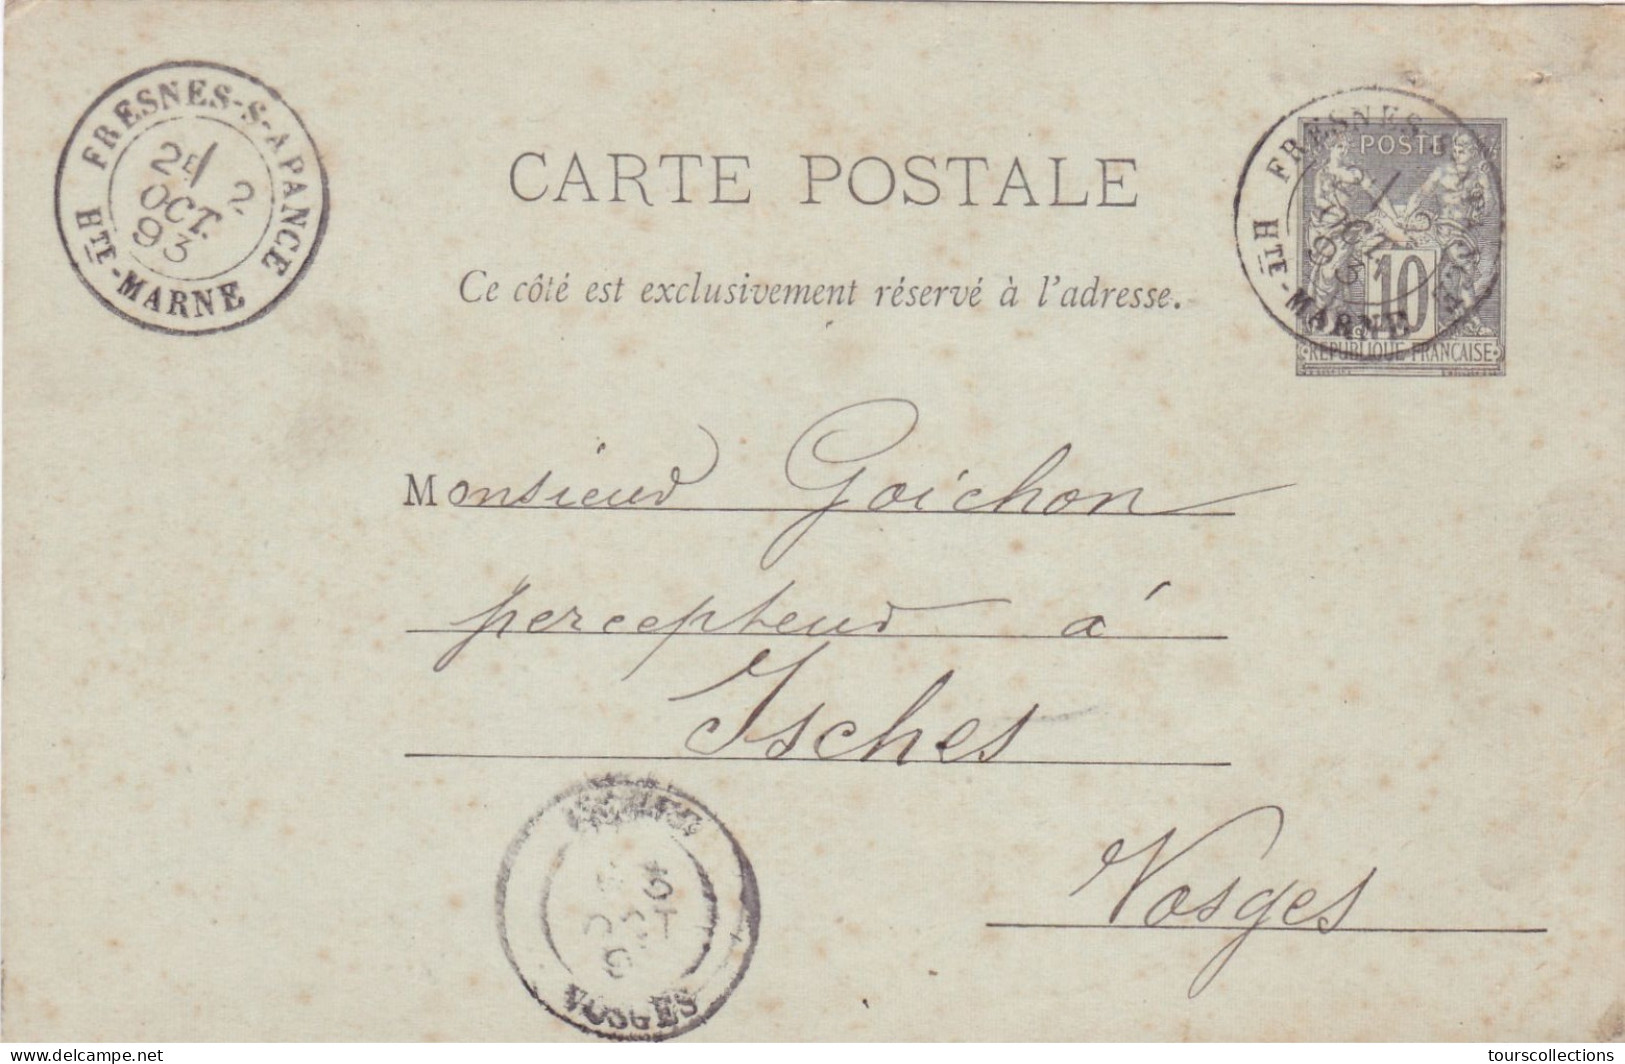 FRESNES-S-APANCE
2E/ 2
OCT.
93
HTE-MARNE
CARTE POSTALE
Ce côté est exclusivement réservé à l'adresse.
FRESNES
OCT.
93
HTE-MARNE
POSTE
10
REPUBLIQUE FRANÇAISE
Monsieur Goichon
percepteur à
Isches
Vosges
VOSGES
www.delcampe.net
tourscollections